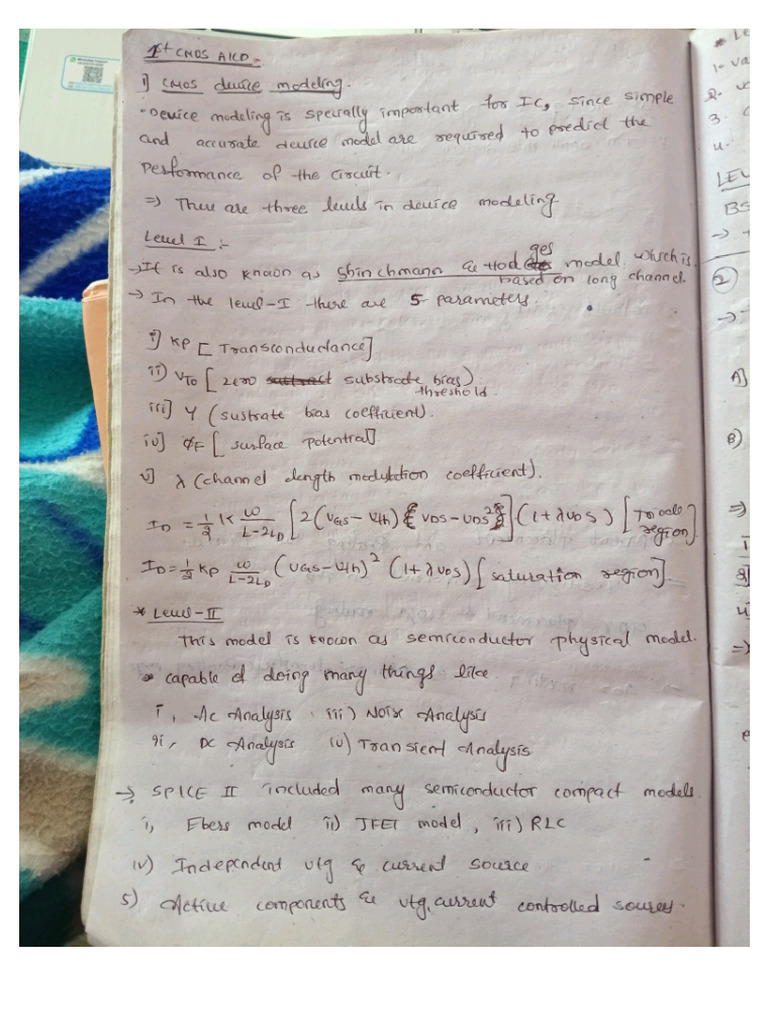 1st CMOS AICD :-
i) CMOS device modeling.
· Device modeling is specially important for IC, since simple
and accurate device model are required to predict the
performance of the circuit.
=> There are three levels in device modeling
Level I :-
→ It is also known as Shinchmann & Hodges model. which is
based on long channel.
→ In the level-I there are 5 parameters.
i) KP [Transconductance]
ii) VTO [zero substrate bias)
threshold.
iii] γ (sustrate bias coefficient).
iv] ΦF [surface potential]
v] λ (channel length modulation coefficient).
ID = 1/2 K W/L-2LD [2(VGS - Vth) {VDS - VDS²}] (1+λVDS) [Triode
region]
ID = 1/2 KP W/L-2LD (VGS - Vth)² (1+λVDS) [saturation region].
* Level-II
This model is known as semiconductor physical model.
capable of doing many things like
i, Ac Analysis iii) Noise Analysis
ii, DC Analysis iv) Transient Analysis
→ SPICE II included many semiconductor compact models.
i, Ebers model ii) JFET model, iii) RLC
iv) Independent vtg & current source
5) Active components & vtg, current controlled sources.
* Le
1. va
2.
3.
4.
LEV
BS
→
2
→
A]
B)
=>
i
4
=>